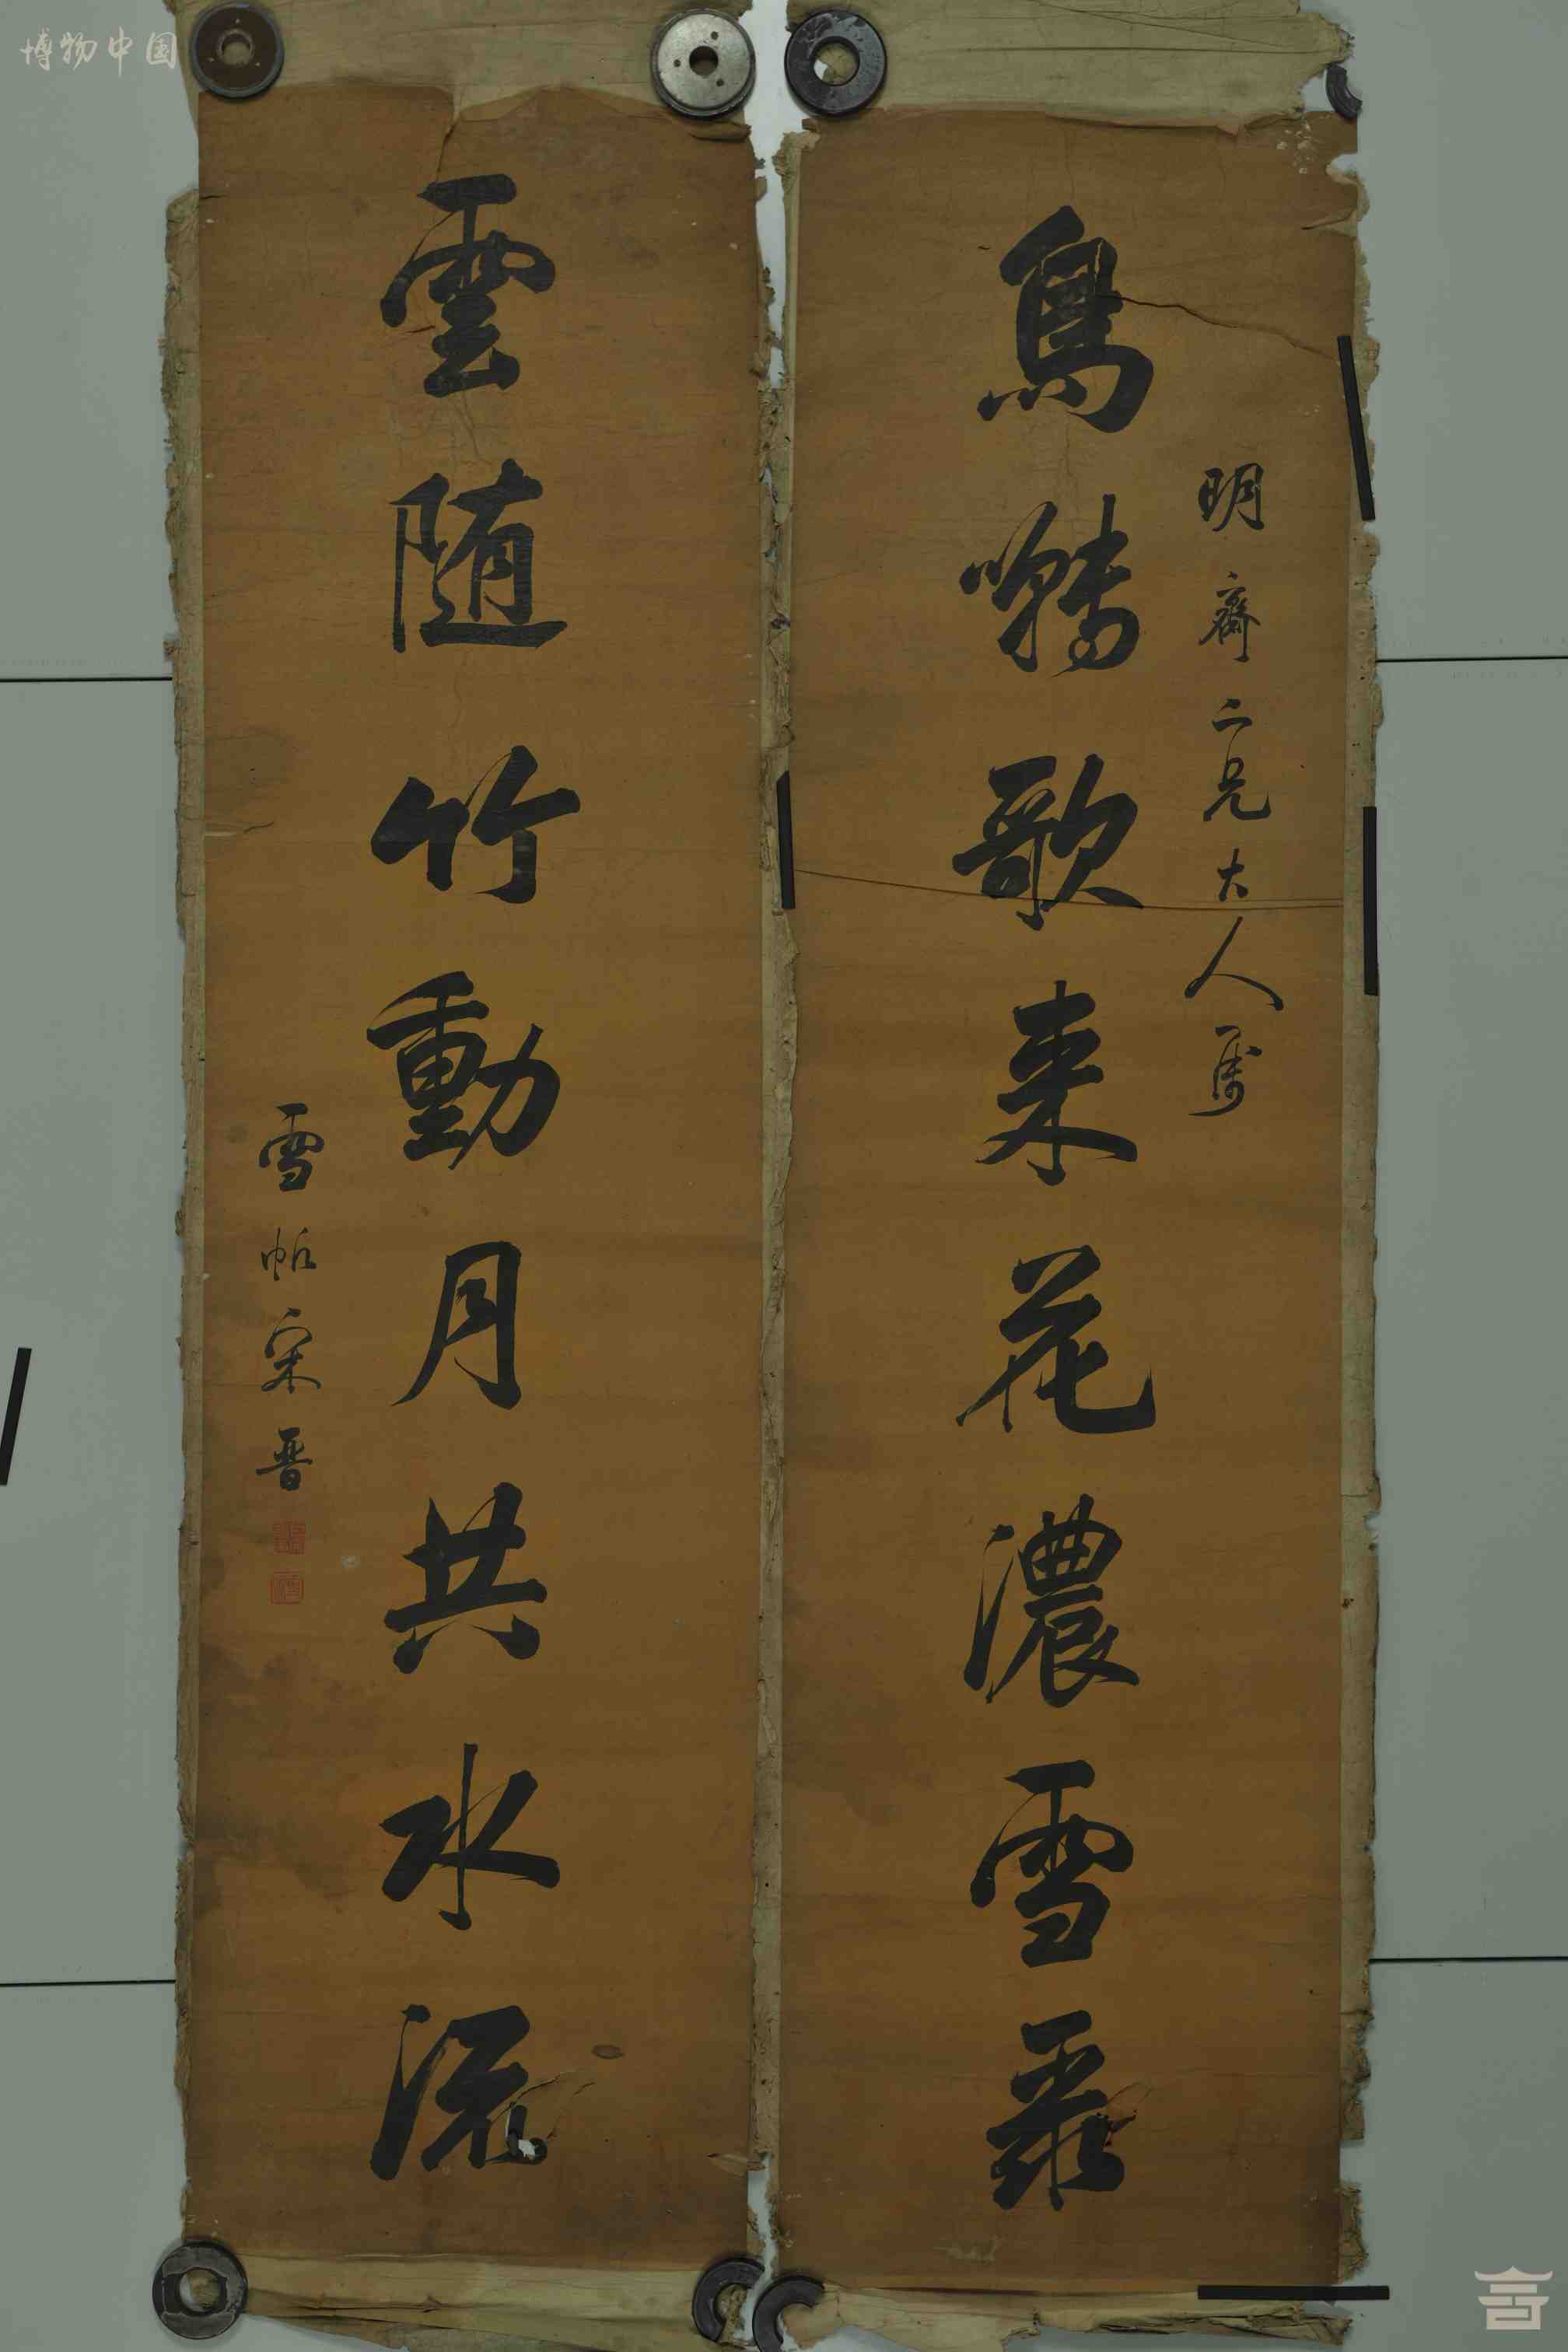 明齋二兄大人屬
鳥囀歌来花濃雪聚
雲随竹動月共水流
雪帆宋晋
博物中国